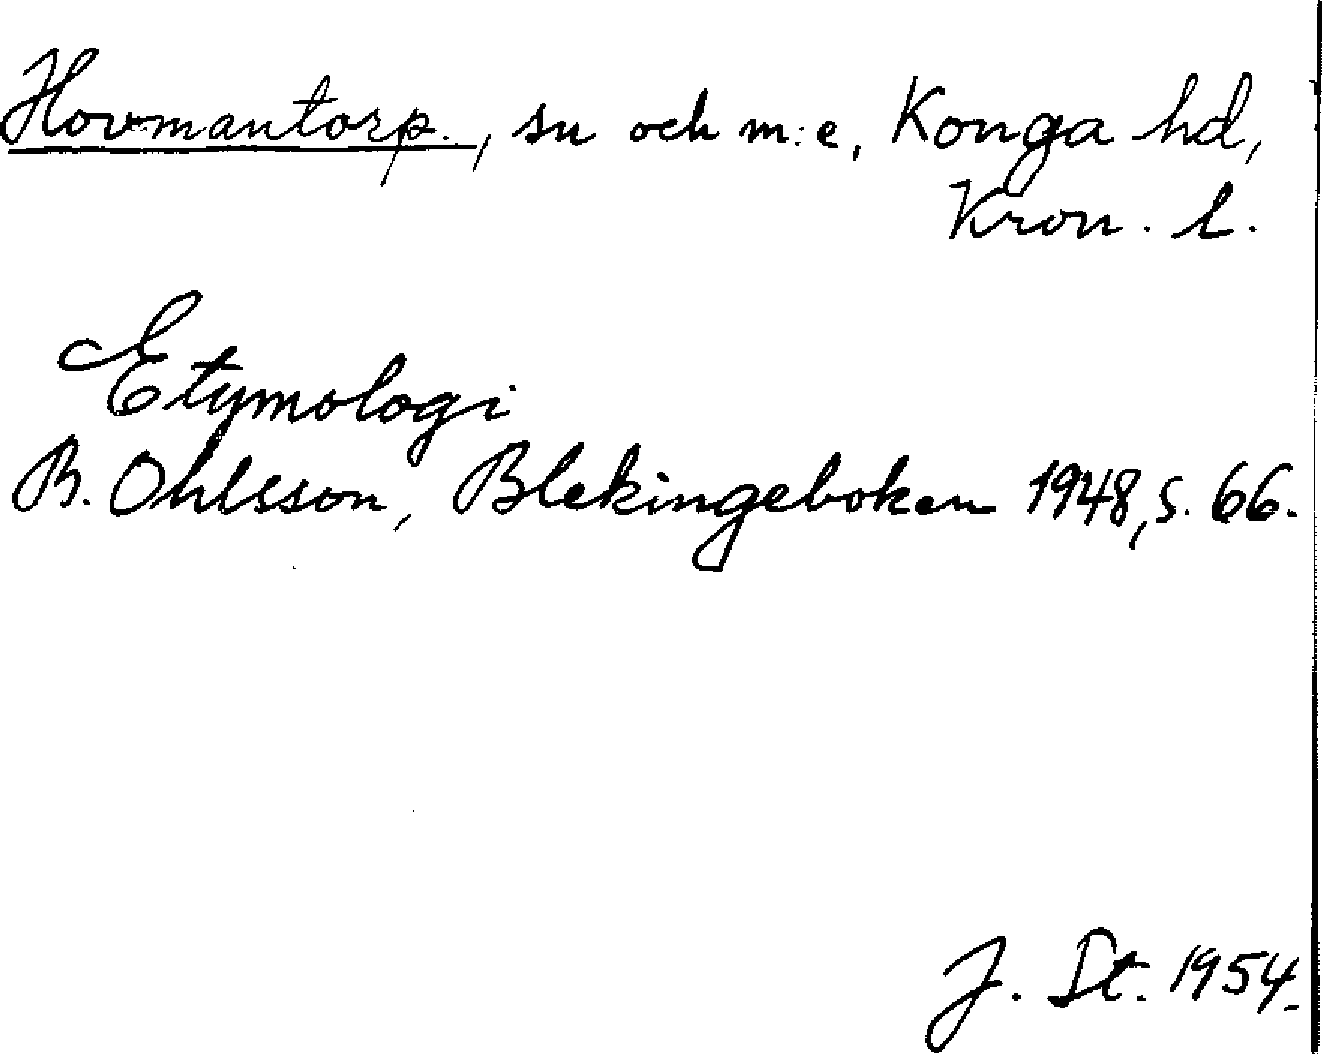 Hovmantorp., sn och m:e, Konga hd,
Kron. l.
Etymologi
B. Ohlsson, Blekingeboken 1948, s. 66.
J. St. 1954.